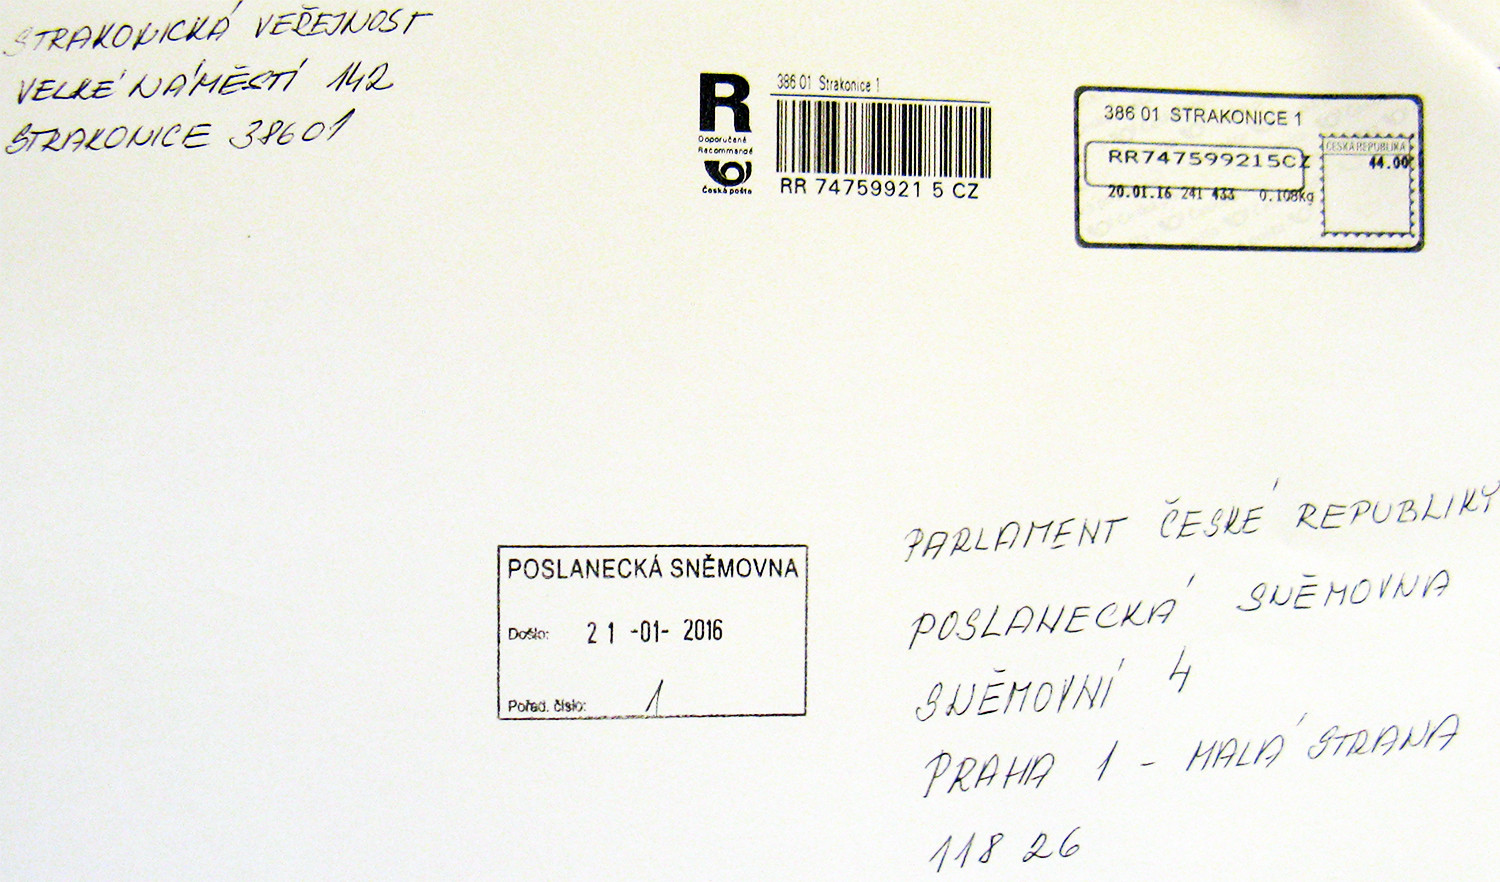 STRAKONICKÁ VEŘEJNOST
VELKÉ NÁMĚSTÍ 142
STRAKONICE 38601
R
Doporučeně
Recommandé
Česká pošta
386 01 Strakonice 1
RR 74759921 5 CZ
386 01 STRAKONICE 1
RR747599215CZ
20.01.16 241 433 0.108kg
ČESKÁ REPUBLIKA
44.00
POSLANECKÁ SNĚMOVNA
Došlo: 21 -01- 2016
Pořad. číslo: 1
PARLAMENT ČESKÉ REPUBLIKY
POSLANECKÁ SNĚMOVNA
SNĚMOVNÍ 4
PRAHA 1 - MALÁ STRANA
118 26